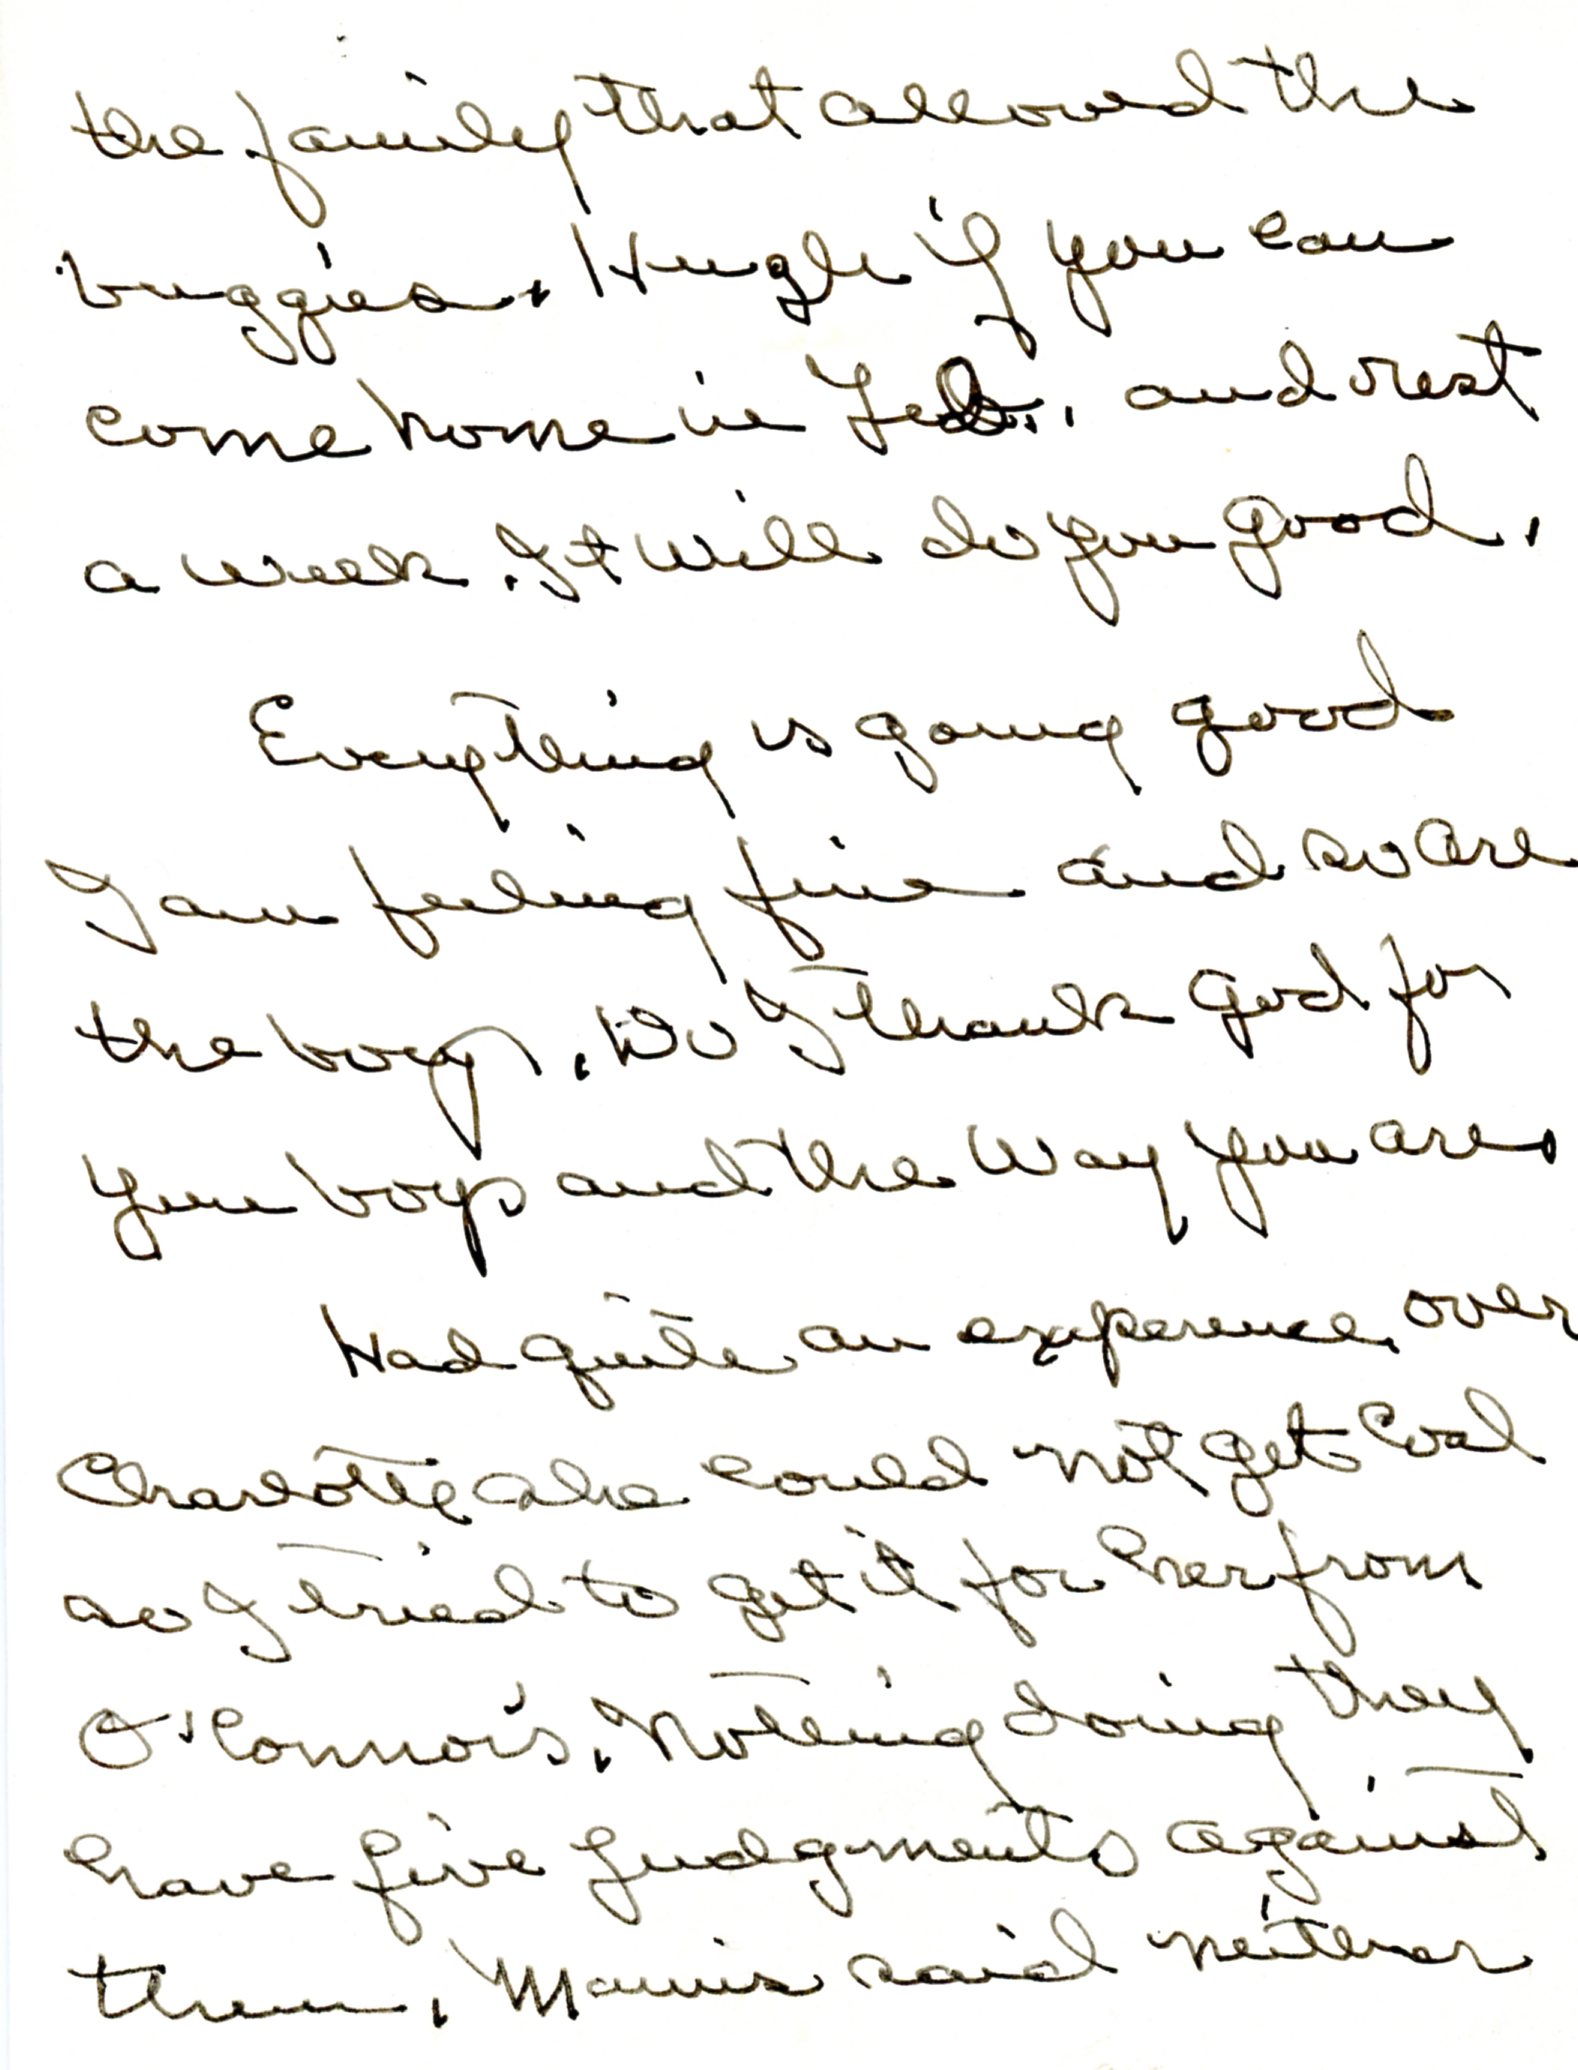 the family that allowed the
buggies. Hugh if you can
come home in Feb., and rest
a week. It will do you good.
Everything is going good
I am feeling fine and so are
the boys. Do I thank God for
you boys and the way you are.
Had quite an experence over
Charlotte she could not get Coal
so I tried to get it for her from
O'Connor's. Nothing doing they
have five Judgments against
them. Mamie said neither